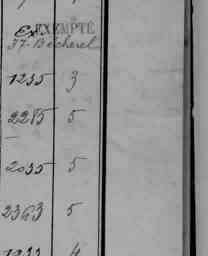 EXEMPTÉ
37-Bécherel
1235 3
2285 5
2035 5
2363 5
4